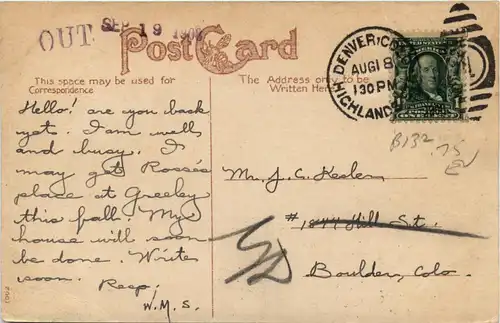 OUT SEP 19 1908
Post Card
This space may be used for
Correspondence
The Address only to be
Written Here
DENVER, COLO.
AUG 18
130 PM
HIGHLANDS
UNITED STATES OF AMERICA
1
B132 .75
Hello! are you back
yet. I am well
and busy. I
may get Rosse's
place at Greeley
this fall. My
house will soon
be done. Write
soon.
Resp.
W.M.S.
Mr. J. C. Kesler
# 1844 Hill St.
Boulder, Colo.